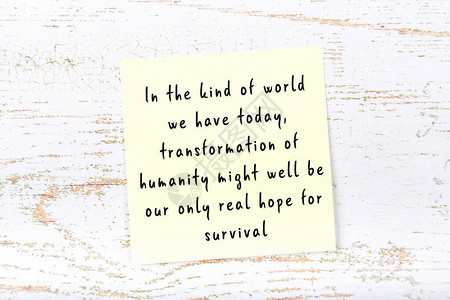 In the kind of world
we have today,
transformation of
humanity might well be
our only real hope for
survival